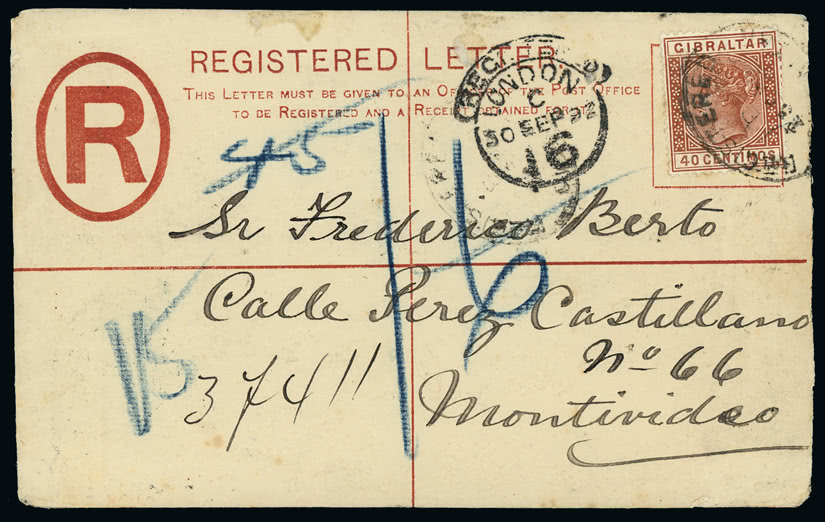 REGISTERED LETTER
THIS LETTER MUST BE GIVEN TO AN OFFICER OF THE POST OFFICE
TO BE REGISTERED AND A RECEIPT OBTAINED FOR IT
R
GIBRALTAR
40 CENTIMOS
REGISTERED
LONDON
30 SEP
16
45
Sr Frederico Berto
Calle Perez Castillano
No 66
Montivideo
37411
15
16